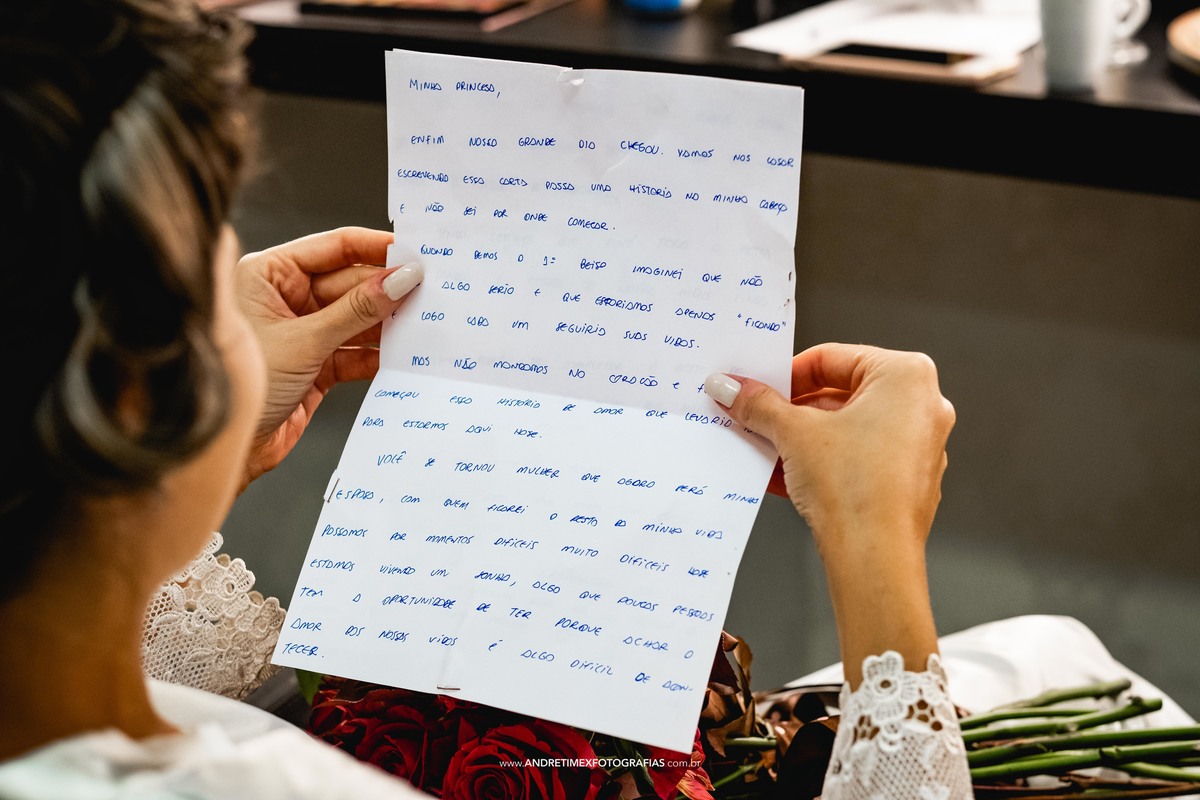 MINHA PRINCESA,
ENFIM NOSSO GRANDE DIA CHEGOU. VAMOS NOS CASAR
ESCREVENDO ESSA CARTA PASSA UMA HISTORIA NA MINHA CABEÇA
E NÃO SEI POR ONDE COMEÇAR.
QUANDO DEMOS O 1º BEIJO IMAGINEI QUE NÃO
ALGO SERIO E QUE ESTARIAMOS APENAS "FICANDO"
E LOGO CADA UM SEGUIRIA SUAS VIDAS.
MAS NÃO MANDAMOS NO CORAÇÃO E
COMEÇOU ESSA HISTÓRIA DE AMOR QUE LEVARIA
PARA ESTARMOS AQUI HOJE.
VOCÊ SE TORNOU MULHER QUE AGORA SERÁ MINHA
ESPOSA, COM QUEM FICAREI O RESTO DA MINHA VIDA
PASSAMOS POR MOMENTOS DIFÍCEIS MUITO DIFÍCEIS HOJE
ESTAMOS VIVENDO UM SONHO, ALGO QUE POUCAS PESSOAS
TEM A OPORTUNIDADE DE TER PORQUE ACHAR O
AMOR DAS NOSSAS VIDAS É ALGO DIFÍCIL DE ACON-
TECER.
www.ANDRETIMEXFOTOGRAFIAS.com.br